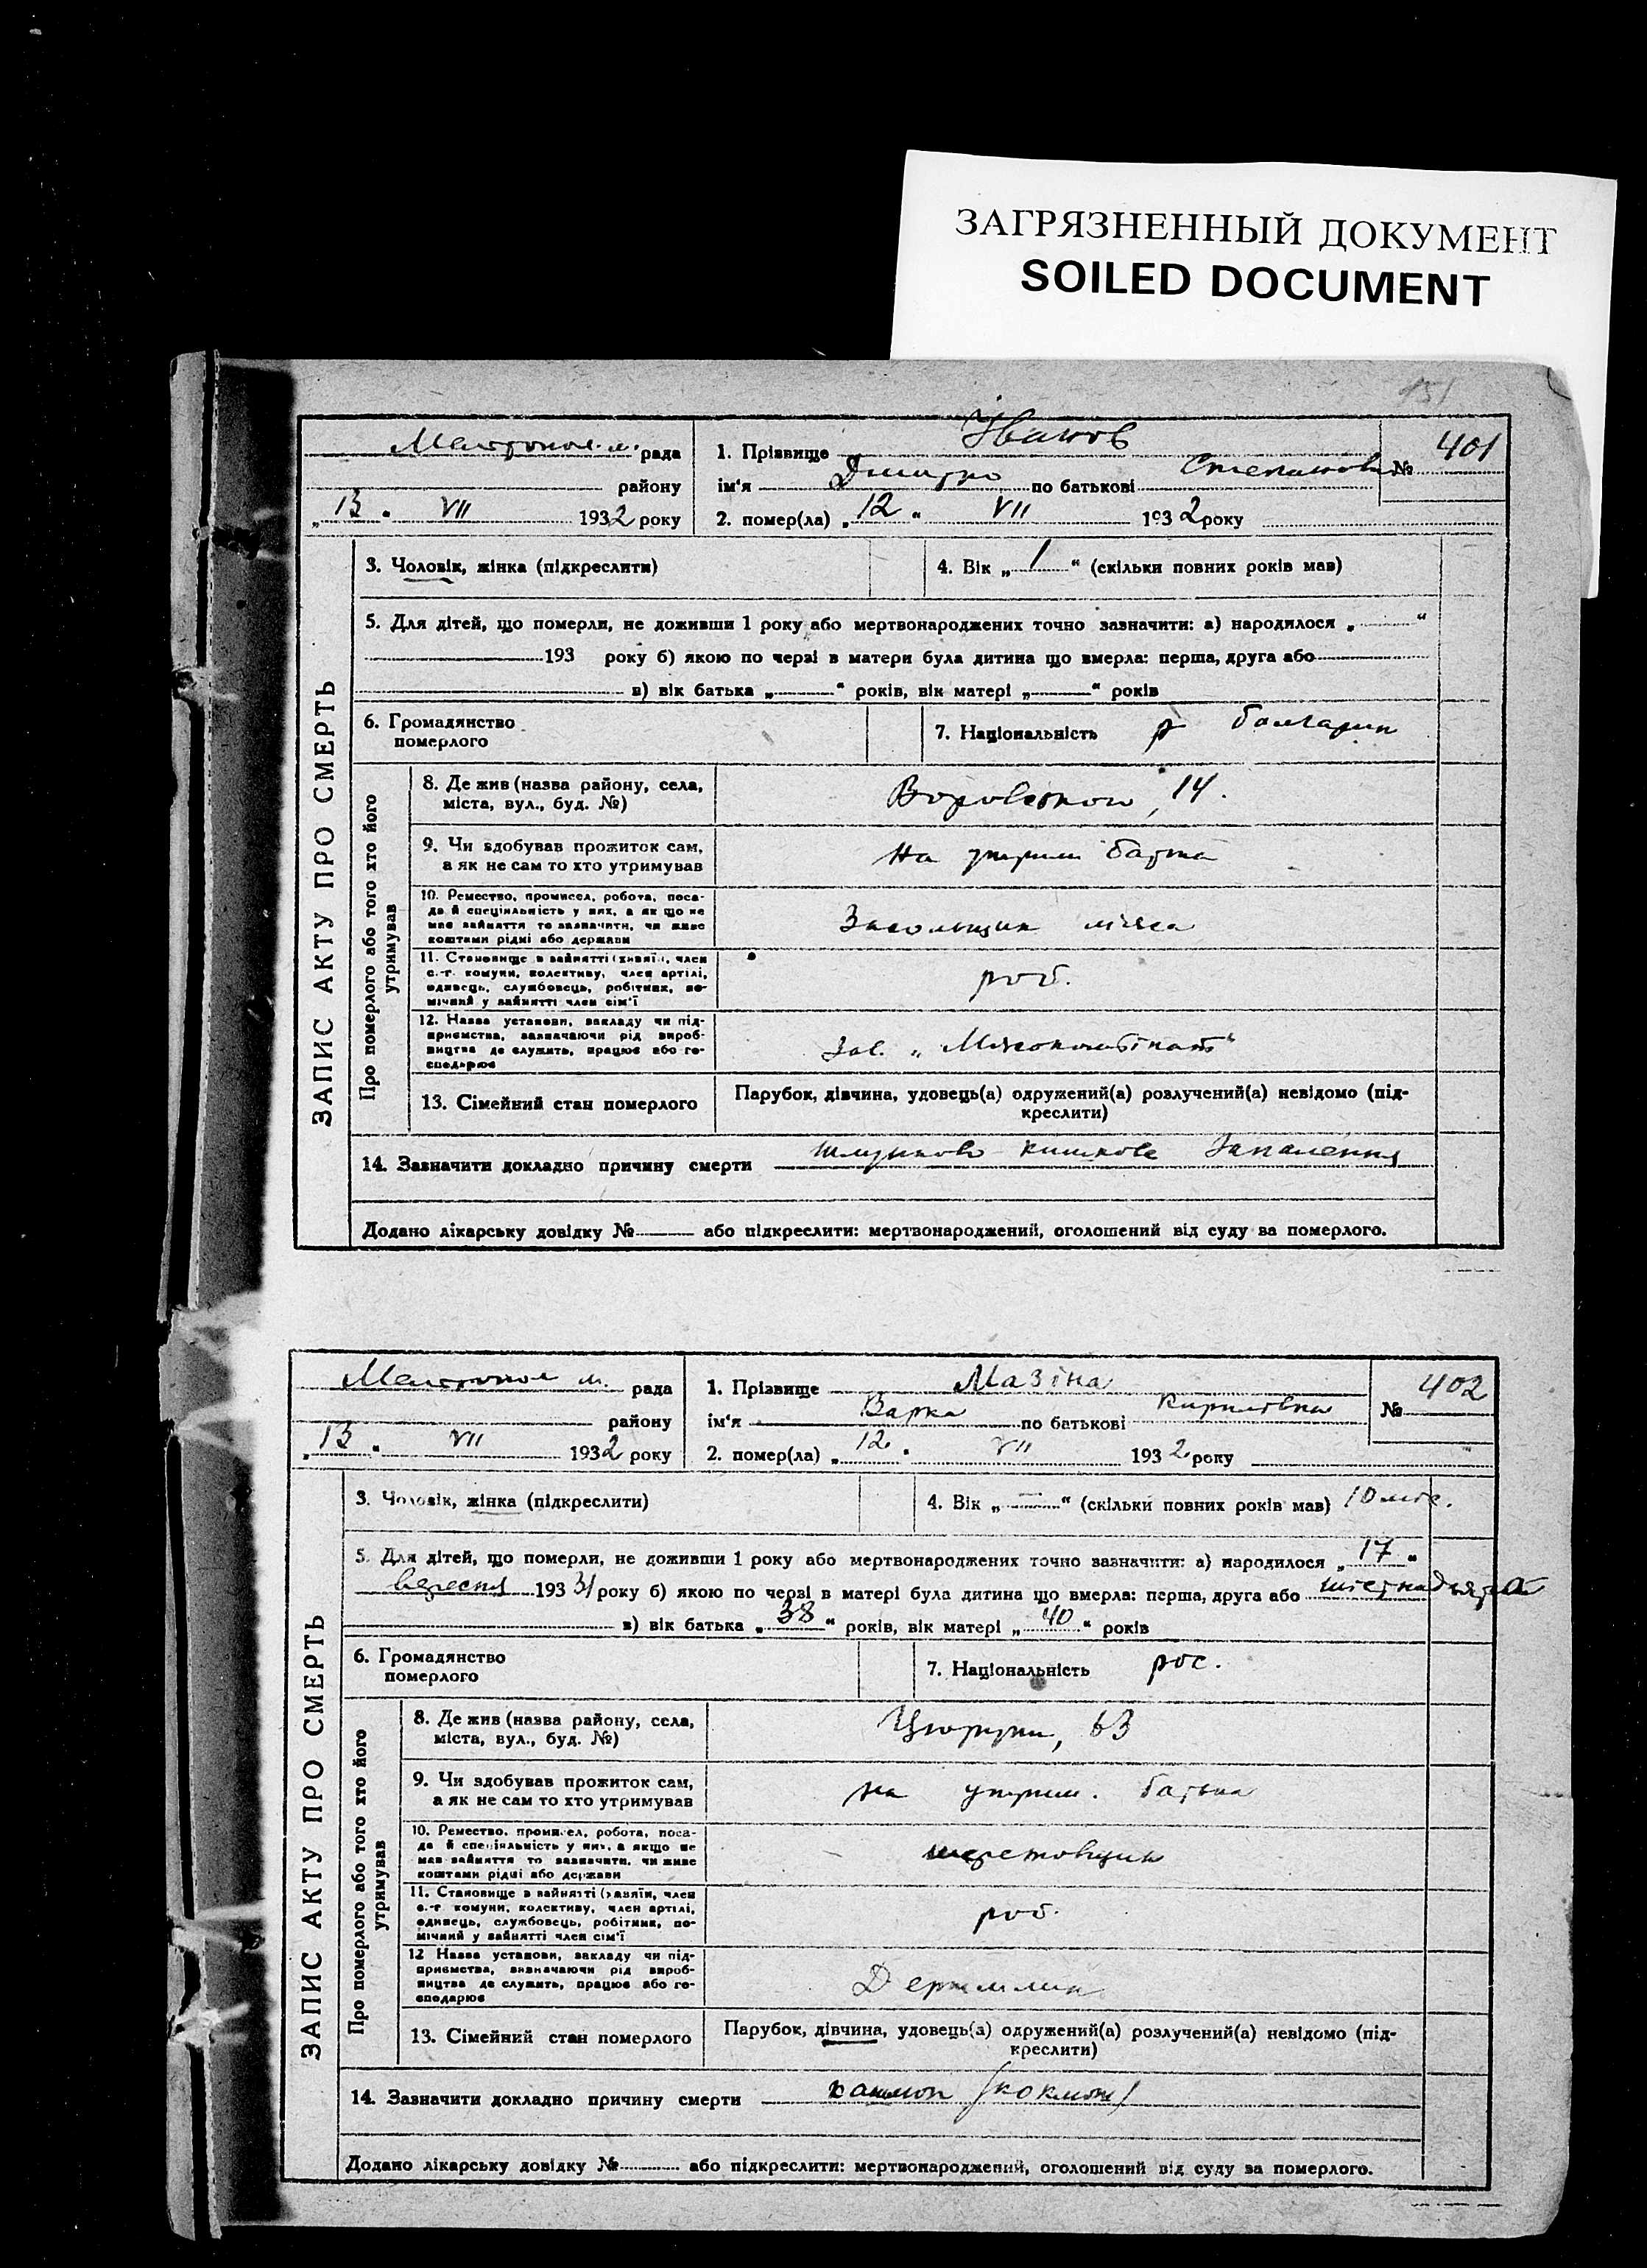 ЗАГРЯЗНЕННЫЙ ДОКУМЕНТ
SOILED DOCUMENT
151
ЗАПИС АКТУ ПРО СМЕРТЬ
рада
району
„13“ VII 1932 року
1. Прізвище Іванов
ім‘я Дмитро по батькові
№ 401
2. помер(ла) „12“ VII 1932 року
3. Чоловік, жінка (підкреслити)
4. Вік „1“ (скільки повних років мав)
5. Для дітей, що померли, не доживши 1 року або мертвонароджених точно зазначити: а) народилося „ “
193 року б) якою по черзі в матери була дитина що вмерла: перша, друга або
в) вік батька „ “ років, вік матері „ “ років
6. Громадянство
померлого
7. Національність болгарин
Про померлого або того хто його
утримував
8. Де жив (назва району, села,
міста, вул., буд. №)
14.
9. Чи здобував прожиток сам,
а як не сам то хто утримував
На утрим батька
10. Ремество, промисел, робота, поса-
да й спеціяльність у них, а як що не
мав зайняття то зазначити, чи живе
коштами рідні або держави
Засольщик мяса
11. Становище в зайнятті (хазяїн, член
с.-г. комуни, колективу, член артілі,
одинець, службовець, робітник, по-
мічний у зайнятті член сім‘ї
роб.
12. Назва установи, закладу чи під-
приємства, зазначаючи рід вироб-
ництва де служить, працює або го-
сподарює
Зав. „Мясокомбінат“
13. Сімейний стан померлого
Парубок, дівчина, удовець(а) одружений(а) розлучений(а) невідомо (під-
креслити)
14. Зазначити докладно причину смерти шлунково кишкове запалення
Додано лікарську довідку № або підкреслити: мертвонароджений, оголошений від суду за померлого.
ЗАПИС АКТУ ПРО СМЕРТЬ
м. рада
району
„13“ VII 1932 року
1. Прізвище Мазіна
ім‘я Варка по батькові Кирилівна
№ 402
2. помер(ла) „12“ VII 1932 року
3. Чоловік, жінка (підкреслити)
4. Вік „—“ (скільки повних років мав) 10 міс.
5. Для дітей, що померли, не доживши 1 року або мертвонароджених точно зазначити: а) народилося „17“
вересня 1931 року б) якою по черзі в матері була дитина що вмерла: перша, друга або шістнадцята
в) вік батька „38“ років, вік матері „40“ років
6. Громадянство
померлого
7. Національність рос.
Про померлого або того хто його
утримував
8. Де жив (назва району, села,
міста, вул., буд. №)
Цюрупи, 63
9. Чи здобував прожиток сам,
а як не сам то хто утримував
на утрим. батька
10. Ремество, промисел, робота, поса-
да й спеціяльність у них, а якщо не
мав зайняття то зазначити, чи живе
коштами рідні або держави
11. Становище в зайнятті (хазяїн, член
с.-г. комуни, колективу, член артілі,
одинець, службовець, робітник, по-
мічний у зайнятті член сім‘ї
роб.
12 Назва установи, закладу чи під-
приємства, визначаючи рід вироб-
ництва де служить, працює або го-
сподарює
Держмлин
13. Сімейний стан померлого
Парубок, дівчина, удовець(а) одружений(а) розлучений(а) невідомо (під-
креслити)
14. Зазначити докладно причину смерти кашлюк (коклюш)
Додано лікарську довідку № або підкреслити: мертвонароджений, оголошений від суду за померлого.